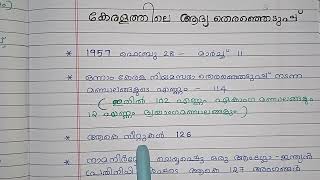 കേരളത്തിലെ ആദ്യ തെരഞ്ഞെടുപ്പ്
* 1957 ഫെബ്രു 28 - മാർച്ച് 11
* ഒന്നാം കേരള നിയമസഭാ തെരഞ്ഞെടുപ്പ് നടന്ന
മണ്ഡലങ്ങളുടെ എണ്ണം - 114
( ഇതിൽ 102 എണ്ണം ഏകാംഗ മണ്ഡലങ്ങളും
12 എണ്ണം ദ്വയാംഗമണ്ഡലങ്ങളും )
* ആകെ സീറ്റുകൾ 126
* നാമനിർദ്ദേശം ചെയ്യപ്പെട്ട ഒരു ആംഗ്ലോ-ഇന്ത്യൻ
ആകെ 127 അംഗങ്ങൾ